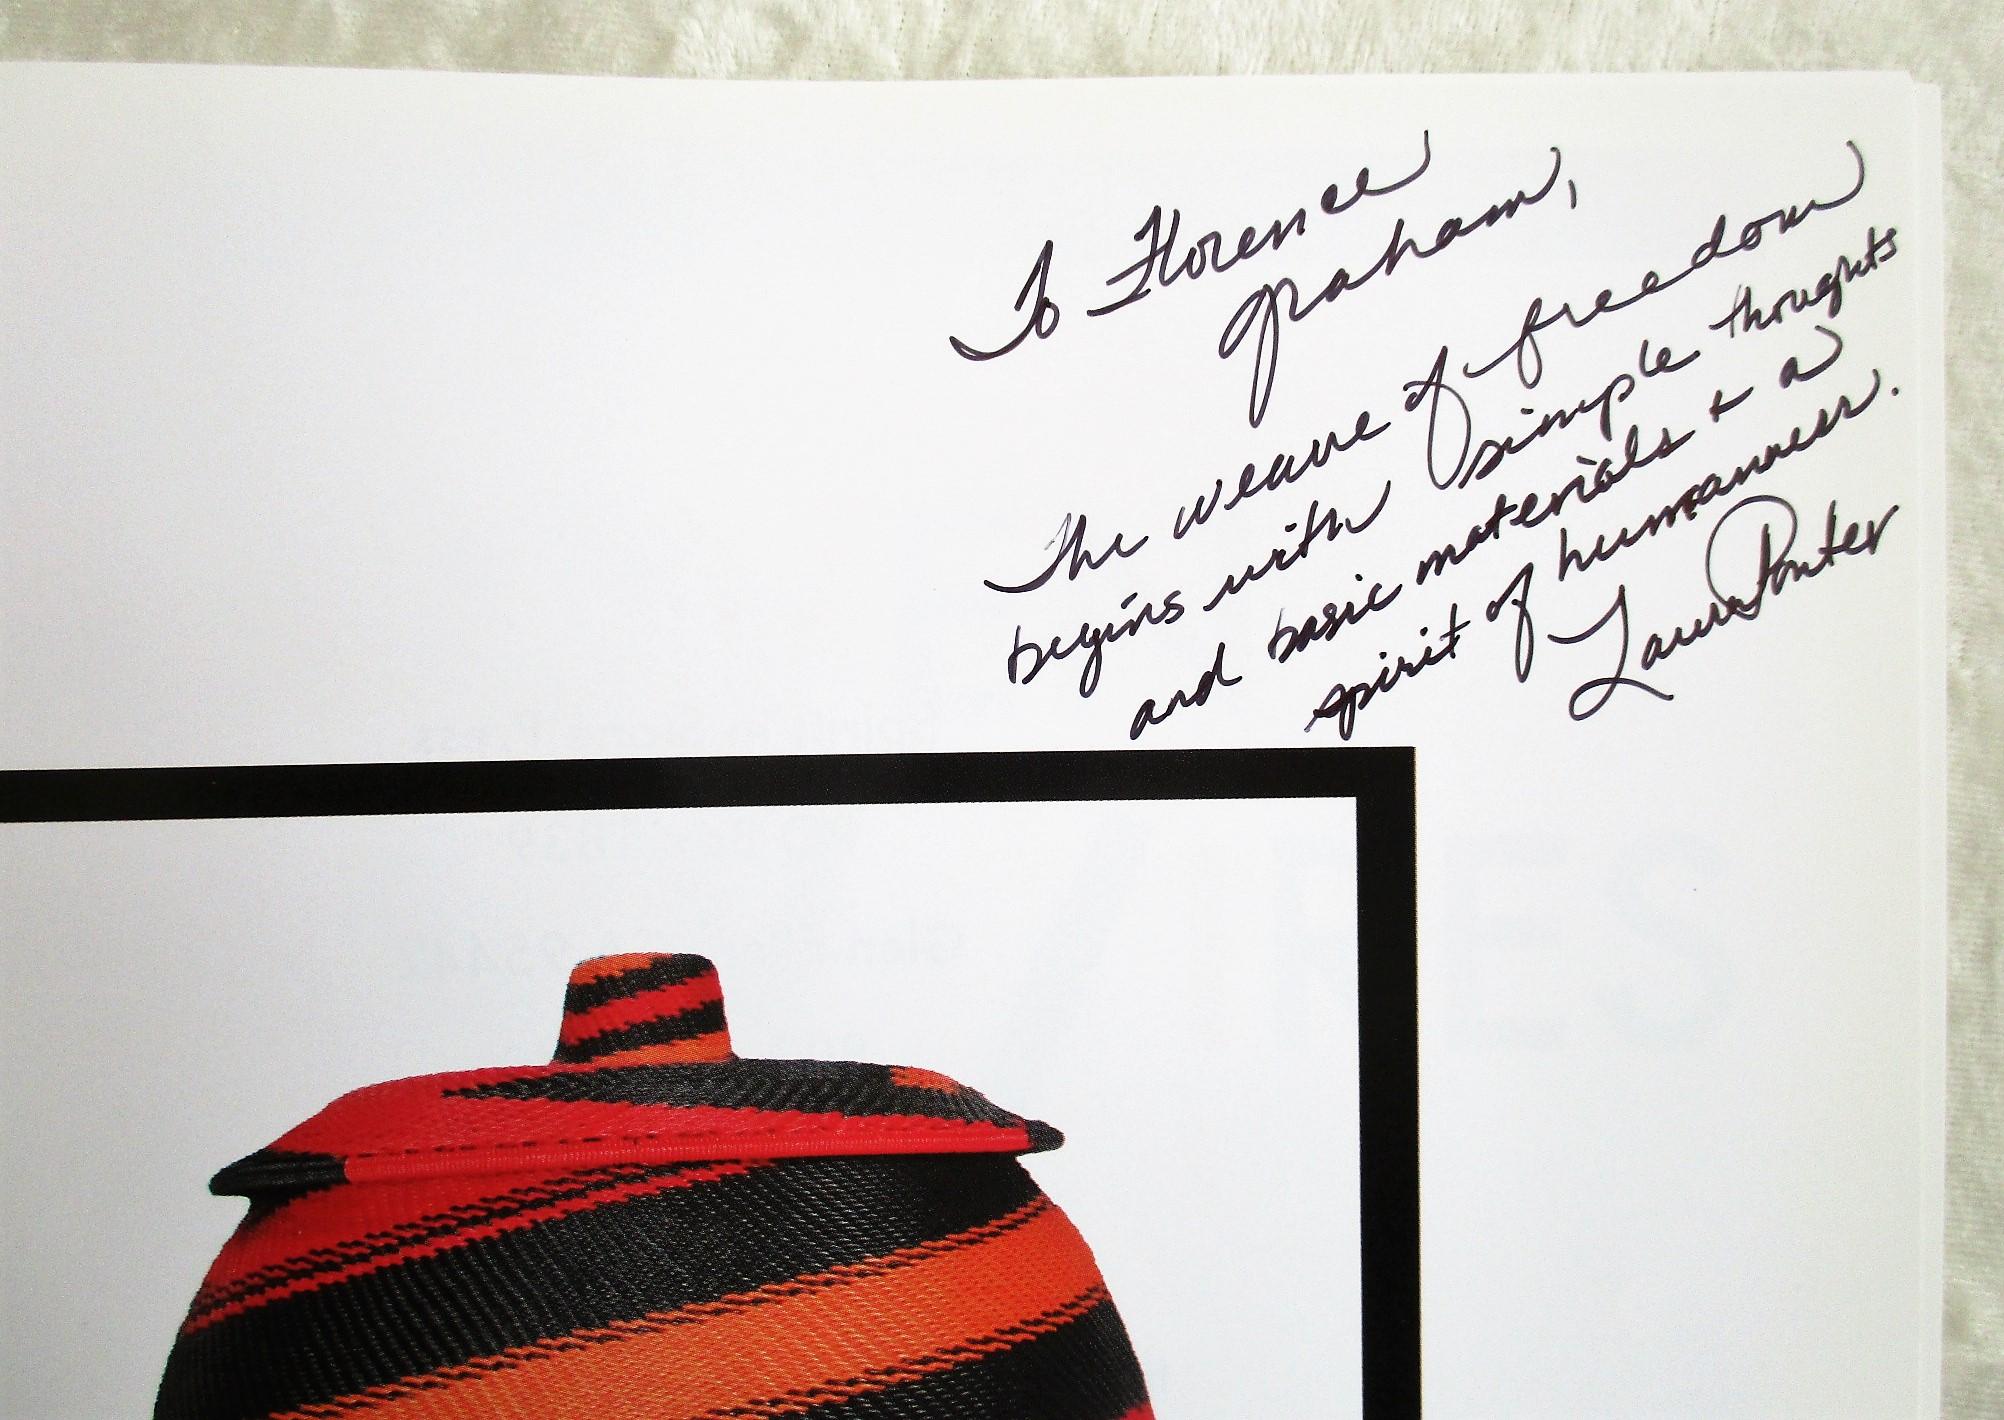 To Florence
Graham,
The weave of freedom
begins with simple thoughts
and basic materials + a
spirit of humanness.
Laura